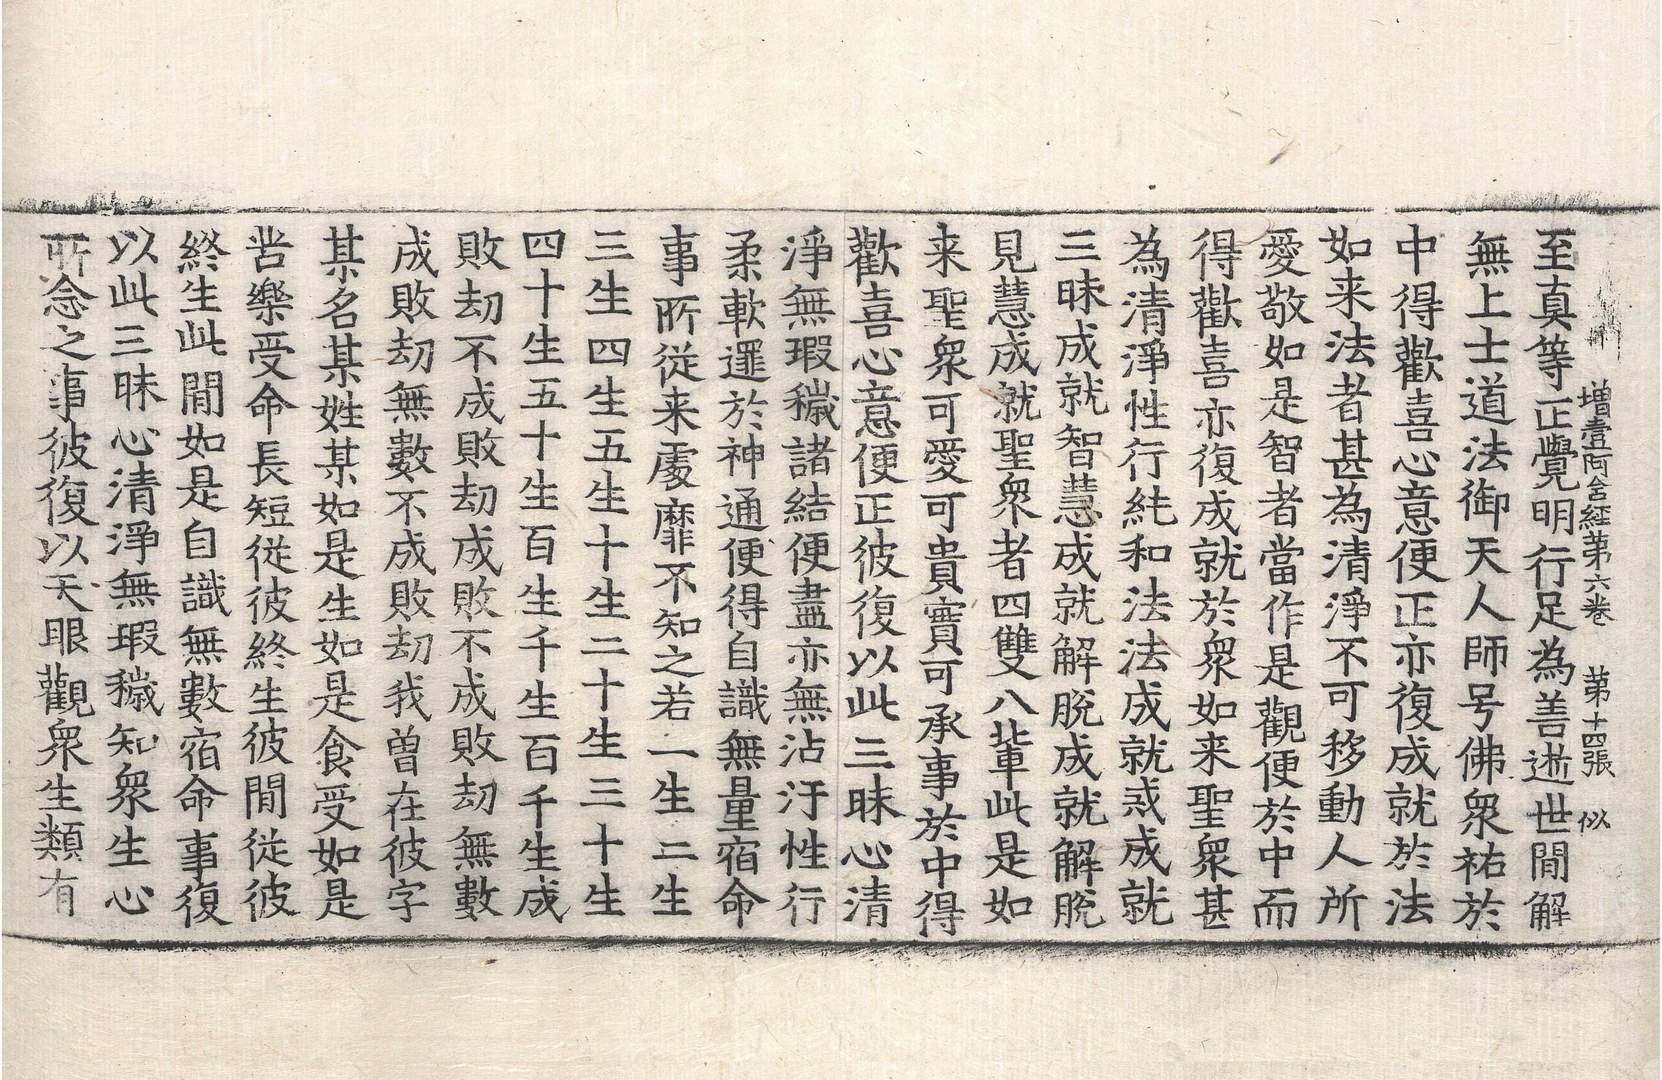 增壹阿含經第六卷 第十四張 似
至真等正覺明行足為善逝世間解
無上士道法御天人師号佛衆祐於
中得歡喜心意便正亦復成就於法
如来法者甚為清淨不可移動人所
愛敬如是智者當作是觀便於中而
得歡喜亦復成就於衆如来聖衆甚
為清淨性行純和法法成就戒成就
三昧成就智慧成就解脫成就解脫
見慧成就聖衆者四雙八輩此是如
来聖衆可愛可貴實可承事於中得
歡喜心意便正彼復以此三昧心清
淨無瑕穢諸結便盡亦無沾汙性行
柔軟逮於神通便得自識無量宿命
事所從来處靡不知之若一生二生
三生四生五生十生二十生三十生
四十生五十生百生千生百千生成
敗劫不成敗劫成敗不成敗劫無數
成敗劫無數不成敗劫我曾在彼字
某名某姓某如是生如是食受如是
苦樂受命長短從彼終生彼間從彼
終生此間如是自識無數宿命事復
以此三昧心清淨無瑕穢知衆生心
所念之事彼復以天眼觀衆生類有